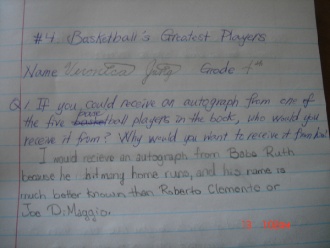 #4 Basketball's Greatest Players
Name Veronica Grade 4th
Q/ If you could receive an autograph from one of
the five base ball players in the book, who would you
receive it from? Why would you want to receive it from him?
I would recieve an autograph from Babe Ruth
because he hit many home runs, and his name is
much better known than Roberto Clemente or
Joe DiMaggio.